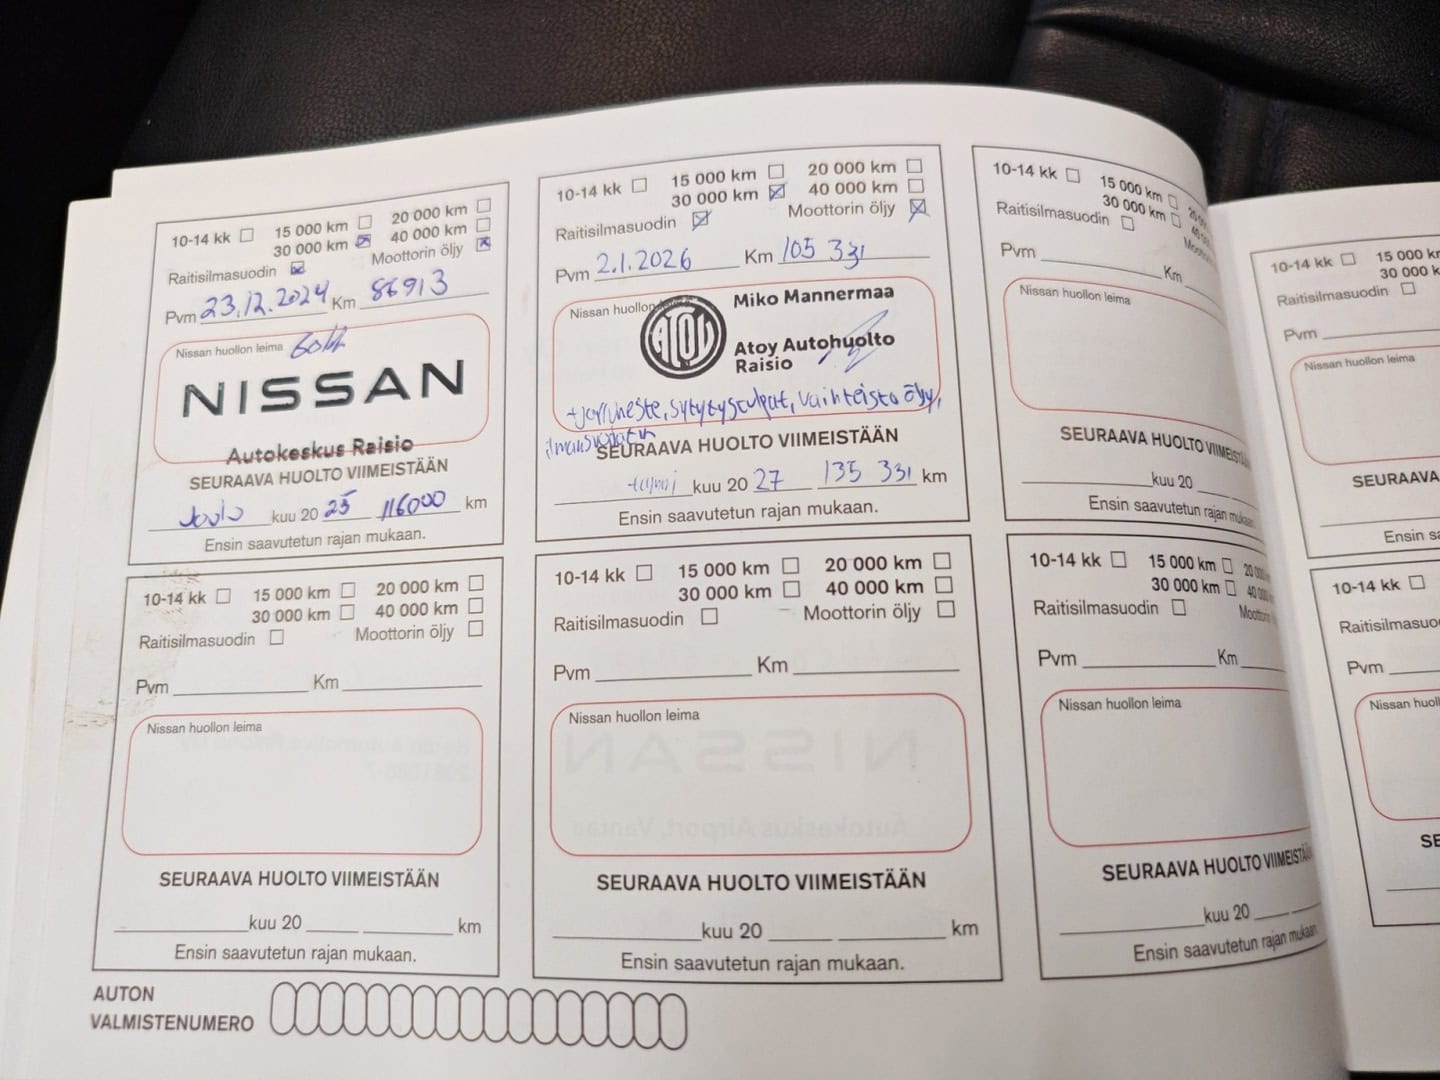 10-14 kk 15 000 km 20 000 km
30 000 km 40 000 km
Raitisilmasuodin Moottorin öljy
Pvm 23.12.2024 Km 86913
Nissan huollon leima
NISSAN
Autokeskus Raisio
SEURAAVA HUOLTO VIIMEISTÄÄN
Joulu kuu 20 25 116000 km
Ensin saavutetun rajan mukaan.
10-14 kk 15 000 km 20 000 km
30 000 km 40 000 km
Raitisilmasuodin Moottorin öljy
Pvm 2.1.2026 Km 105 331
Nissan huollon
ATOY
Miko Mannermaa
Atoy Autohuolto
Raisio
+jarruneste, sytytystulpat, vaihteisto öljy,
ilmansuodatin
SEURAAVA HUOLTO VIIMEISTÄÄN
kuu 20 27 135 331 km
Ensin saavutetun rajan mukaan.
10-14 kk 15 000 km
30 000 km
Raitisilmasuodin
Pvm Km
Nissan huollon leima
SEURAAVA HUOLTO VIIMEISTÄÄN
kuu 20
Ensin saavutetun rajan
10-14 kk 15 000
30 000
Raitisilmasuodin
Pvm
Nissan huollon leima
SEURAAVA
Ensin
10-14 kk 15 000 km 20 000 km
30 000 km 40 000 km
Raitisilmasuodin Moottorin öljy
Pvm Km
Nissan huollon leima
SEURAAVA HUOLTO VIIMEISTÄÄN
kuu 20 km
Ensin saavutetun rajan mukaan.
10-14 kk 15 000 km 20 000 km
30 000 km 40 000 km
Raitisilmasuodin Moottorin öljy
Pvm Km
Nissan huollon leima
SEURAAVA HUOLTO VIIMEISTÄÄN
kuu 20 km
Ensin saavutetun rajan mukaan.
10-14 kk 15 000 km
30 000 km
Raitisilmasuodin
Pvm Km
Nissan huollon leima
SEURAAVA HUOLTO VIIMEISTÄÄN
kuu 20
Ensin saavutetun rajan mukaan.
10-14 kk
Pvm
Nissan
AUTON
VALMISTENUMERO